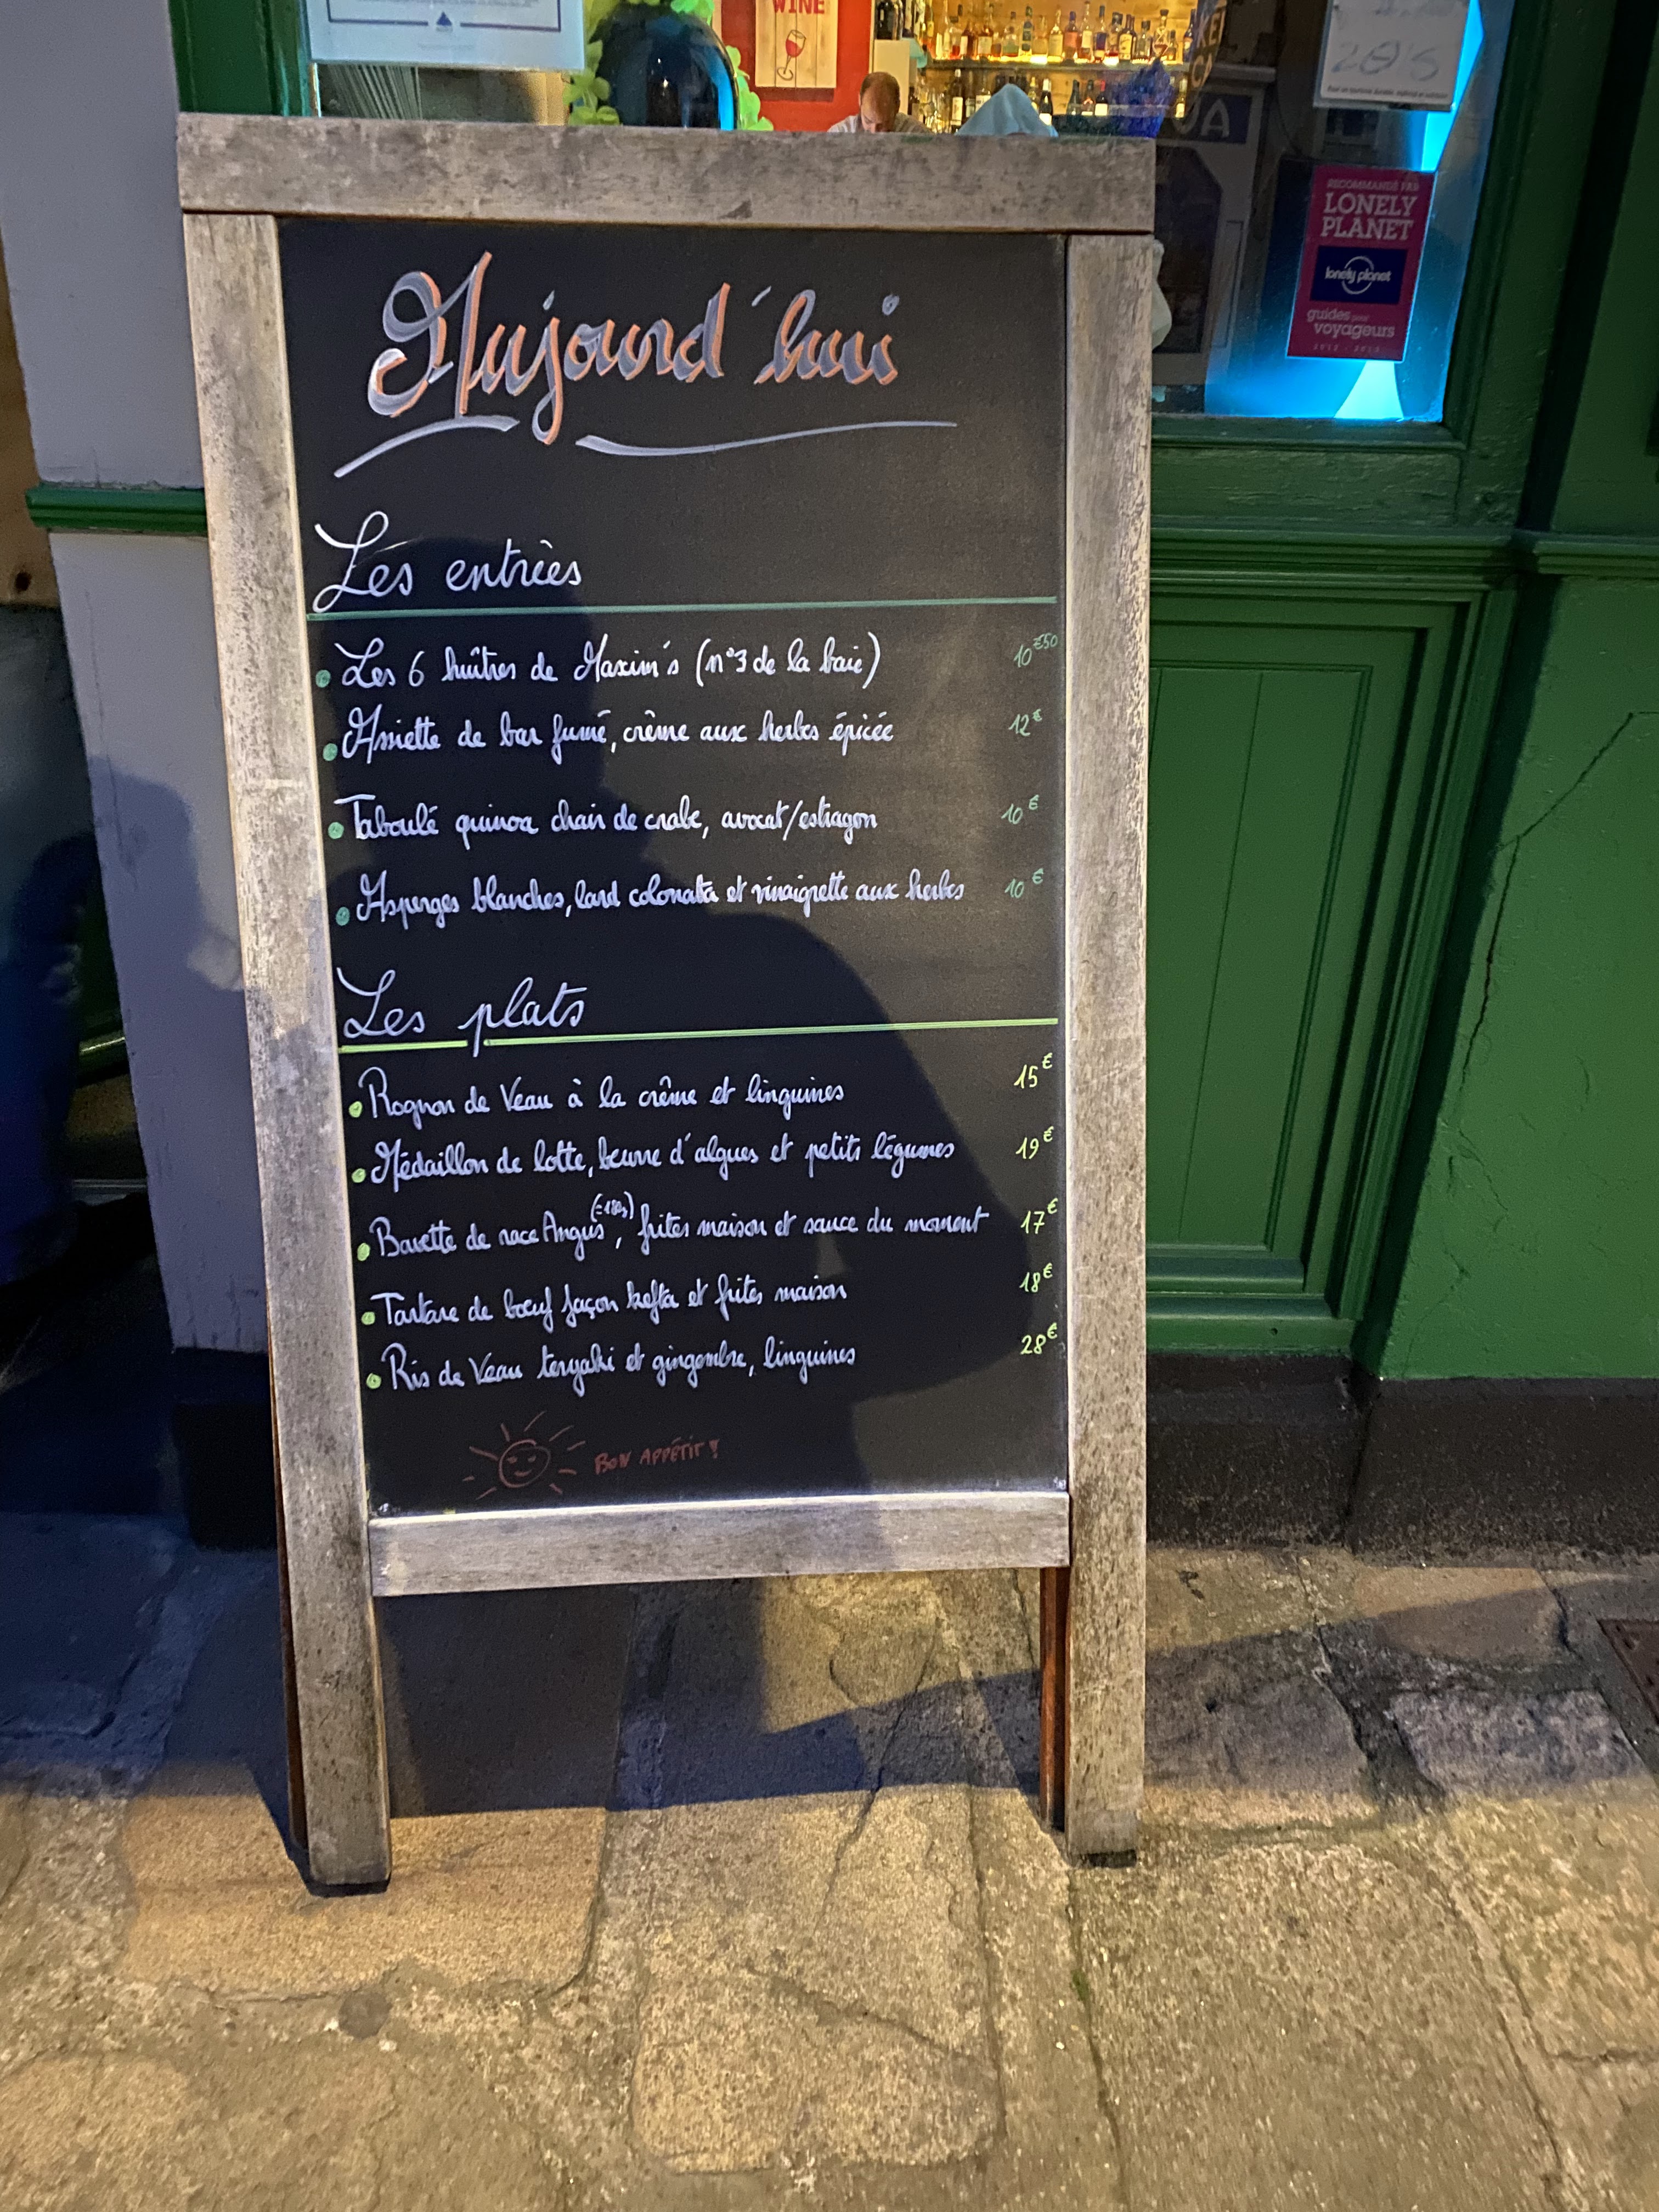 WINE
RECOMMANDÉ PAR
LONELY
PLANET
lonely planet
guides pour
voyageurs
Aujourd'hui
Les entrèes
Les 6 huîtres de Maxim's (n°3 de la baie) 10€50
Assiette de bar fumé, crème aux herbes épicée 12€
Taboulé quinoa chair de crabe, avocat/estragon 10€
Asperges blanches, lard colonata et vinaigrette aux herbes 10€
Les plats
Rognon de Veau à la crême et linguines 15€
Médaillon de lotte, beurre d'algues et petits légumes 19€
Bavette de race Angus (±180g), frites maison et sauce du moment 17€
Tartare de bœuf façon kefta et frites maison 18€
Ris de Veau teryaki et gingembre, linguines 28€
BON APPÉTIT !